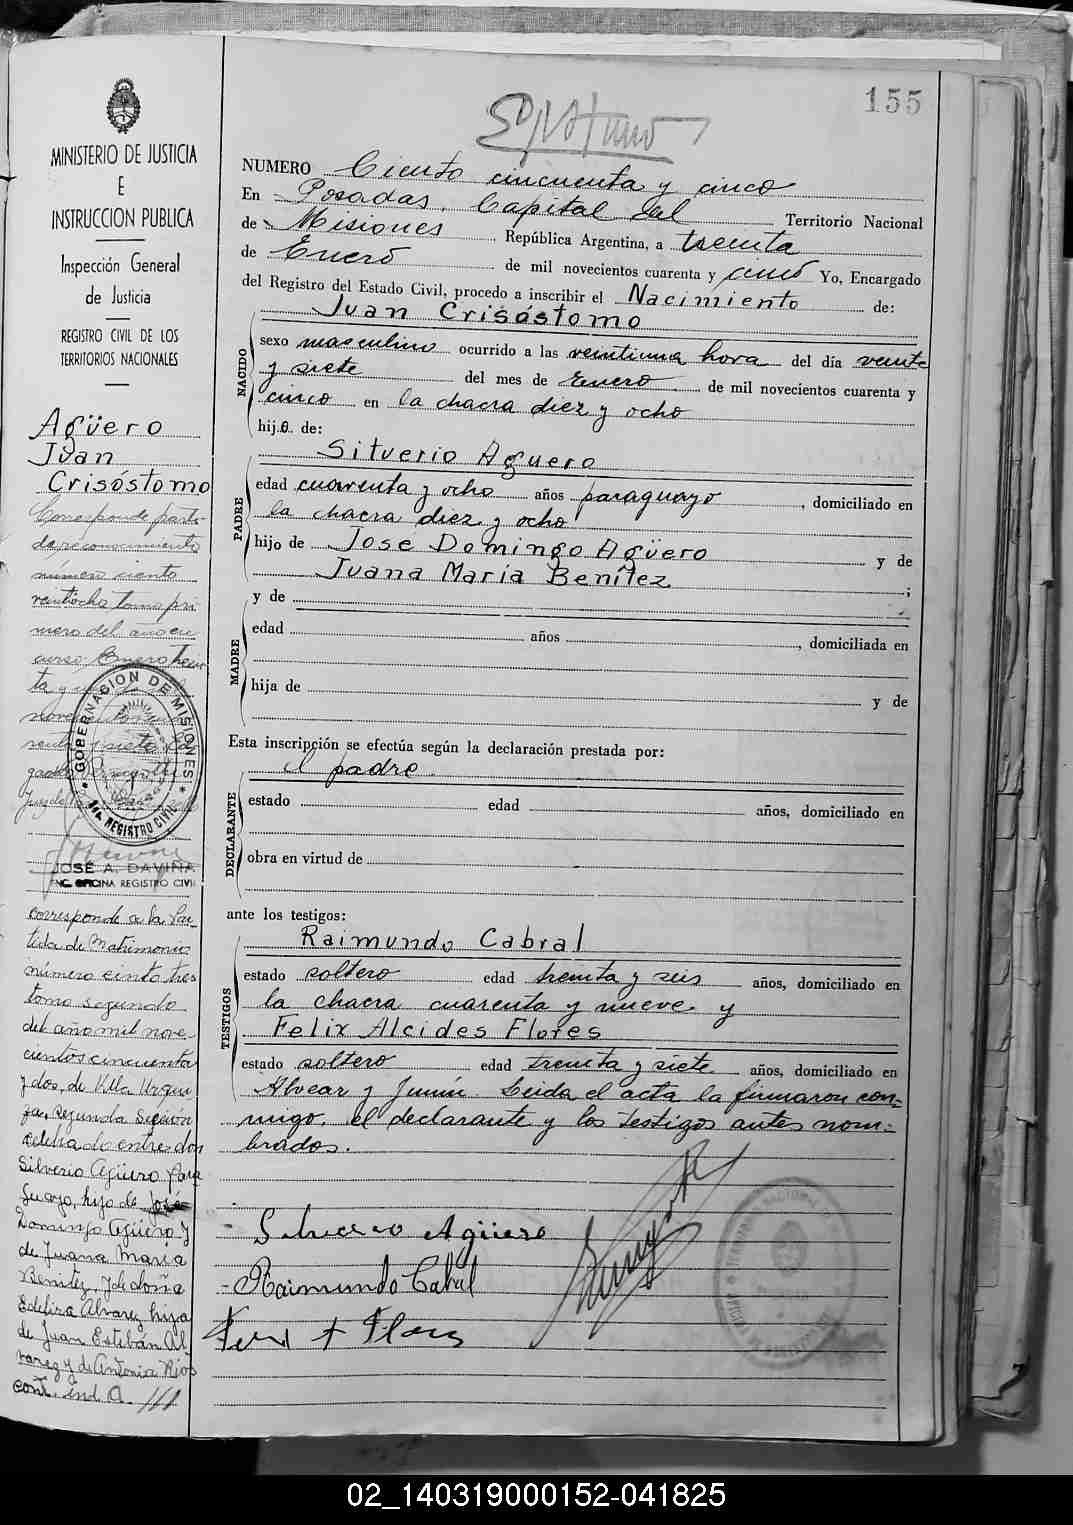 155
NUMERO Ciento cincuenta y cinco
En Posadas, Capital del Territorio Nacional
de Misiones República Argentina, a treinta
de Enero de mil novecientos cuarenta y cinco Yo, Encargado
del Registro del Estado Civil, procedo a inscribir el Nacimiento de:
Juan Crisóstomo
NACIDO
sexo masculino ocurrido a las veintiuna hora del día veinte
y siete del mes de Enero de mil novecientos cuarenta y
cinco en la chacra diez y ocho
hijo de:
Silverio Aguero
PADRE
edad cuarenta y ocho años paraguayo, domiciliado en
la chacra diez y ocho
hijo de Jose Domingo Agüero y de
Juana Maria Benítez;
y de
MADRE
edad años, domiciliada en
hija de y de
Esta inscripción se efectúa según la declaración prestada por:
el padre.
DECLARANTE
estado edad años, domiciliado en
obra en virtud de
ante los testigos:
Raimundo Cabral
TESTIGOS
estado soltero edad treinta y seis años, domiciliado en
la chacra cuarenta y nueve y
Felix Alcides Flores
estado soltero edad treinta y siete años, domiciliado en
Alvear y Junín. Leida el acta la firmaron con-
migo, el declarante y los testigos antes nom-
brados.
Silverio Agüero
Raimundo Cabral
MINISTERIO DE JUSTICIA
E
INSTRUCCION PUBLICA
Inspección General
de Justicia
REGISTRO CIVIL DE LOS
TERRITORIOS NACIONALES
Agüero
Juan
Crisóstomo
Corresponde parti
da reconocimiento
número ciento
veintiocho tomo pri
mero del año en
curso. Enero trein
ta y
GOBERNACION DE MISIONES
REGISTRO CIVIL
JOSÉ A. DAVIÑA
ENC. OFICINA REGISTRO CIVIL
corresponde a la Par-
tida de Matrimonio
número ciento tres
tomo segundo
del año mil nove
cientos cincuenta
y dos, de Villa Urqui
za, segunda Sección
celebrado entre don
Silverio Agüero para
guayo, hijo de José
Domingo Agüero y
de Juana Maria
Benitez, y de doña
Edelira Alvarez hija
de Juan Estebán Al
varez y de Antonia Rios
02_140319000152-041825